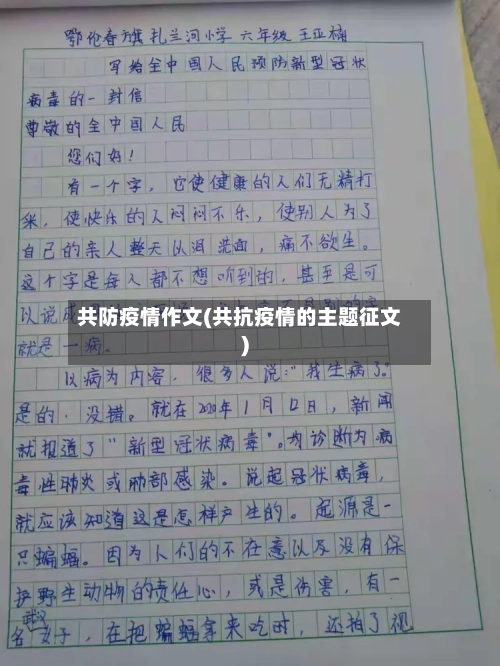 鄂伦春旗扎兰河小学 六年级 王亚楠
写给全中国人民预防新型冠状
病毒的一封信
尊敬的全中国人民
您们好!
有一个字,它使健康的人们无精打
采,使快乐的人闷闷不乐,使别人为了
自己的亲人整天以泪洗面,痛不欲生。
这个字是每人都不想听到的,甚至是可
以说成
共防疫情作文(共抗疫情的主题征文
)
就是一病。
以病为内容,很多人说:"我生病了。"
是的,没错。就在2020年1月12日,新闻
就报道了"新型冠状病毒"。为诊断为病
毒性肺炎或肺部感染。说起冠状病毒,
就应该知道这是怎样产生的。起源是一
只蝙蝠。因为人们的不在意以及没有保
护野生动物的责任心,或是伤害,有一
武汉
名女子,在把蝙蝠拿来吃时,还拍了视